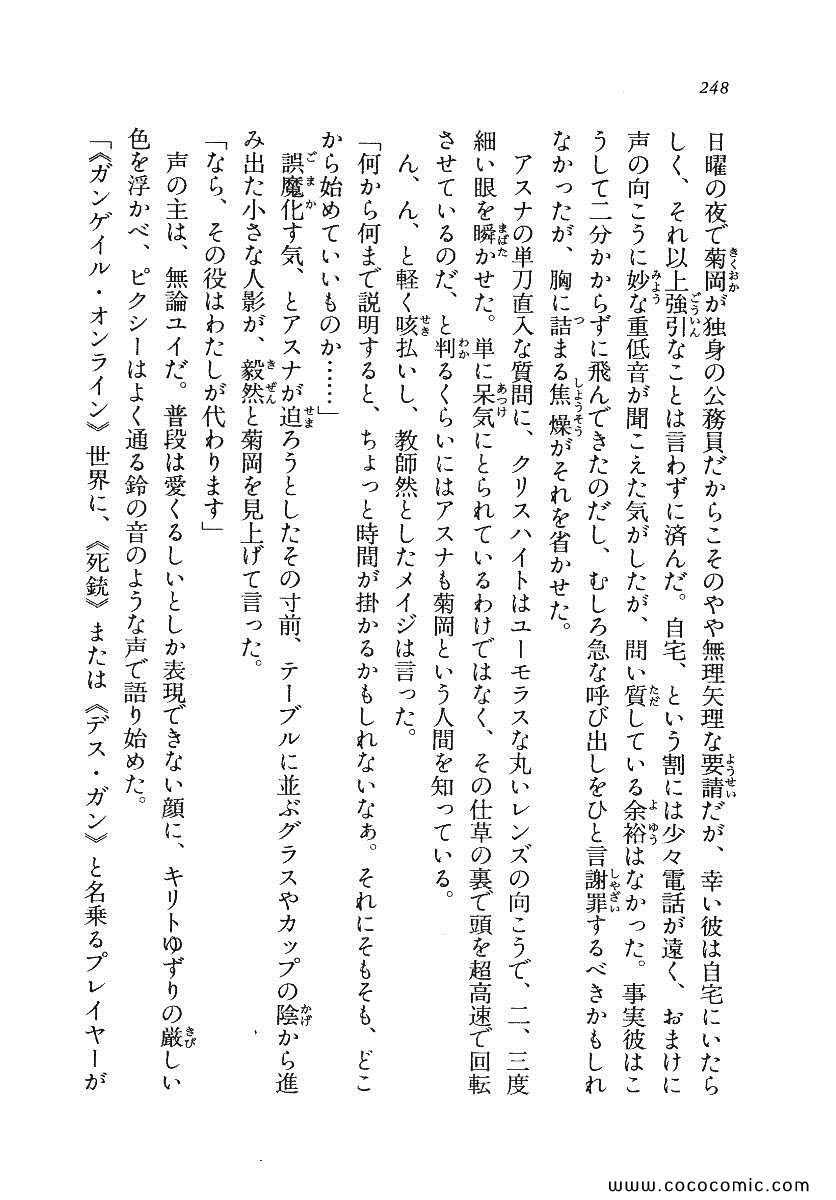 248
日曜の夜で菊岡が独身の公務員だからこそのやや無理矢理な要請だが、幸い彼は自宅にいたら
しく、それ以上強引なことは言わずに済んだ。自宅、という割には少々電話が遠く、おまけに
声の向こうに妙な重低音が聞こえた気がしたが、問い質している余裕はなかった。事実彼はこ
うして二分かからずに飛んできたのだし、むしろ急な呼び出しをひと言謝罪するべきかもしれ
なかったが、胸に詰まる焦燥がそれを省かせた。
アスナの単刀直入な質問に、クリスハイトはユーモラスな丸いレンズの向こうで、二、三度
細い眼を瞬かせた。単に呆気にとられているわけではなく、その仕草の裏で頭を超高速で回転
させているのだ、と判るくらいにはアスナも菊岡という人間を知っている。
ん、ん、と軽く咳払いし、教師然としたメイジは言った。
「何から何まで説明すると、ちょっと時間が掛かるかもしれないなぁ。それにそもそも、どこ
から始めていいものか……」
誤魔化す気、とアスナが迫ろうとしたその寸前、テーブルに並ぶグラスやカップの陰から進
み出た小さな人影が、毅然と菊岡を見上げて言った。
「なら、その役はわたしが代わります」
声の主は、無論ユイだ。普段は愛くるしいとしか表現できない顔に、キリトゆずりの厳しい
色を浮かべ、ピクシーはよく通る鈴の音のような声で語り始めた。
「《ガンゲイル・オンライン》世界に、《死銃》または《デス・ガン》と名乗るプレイヤーが
www.cococomic.com